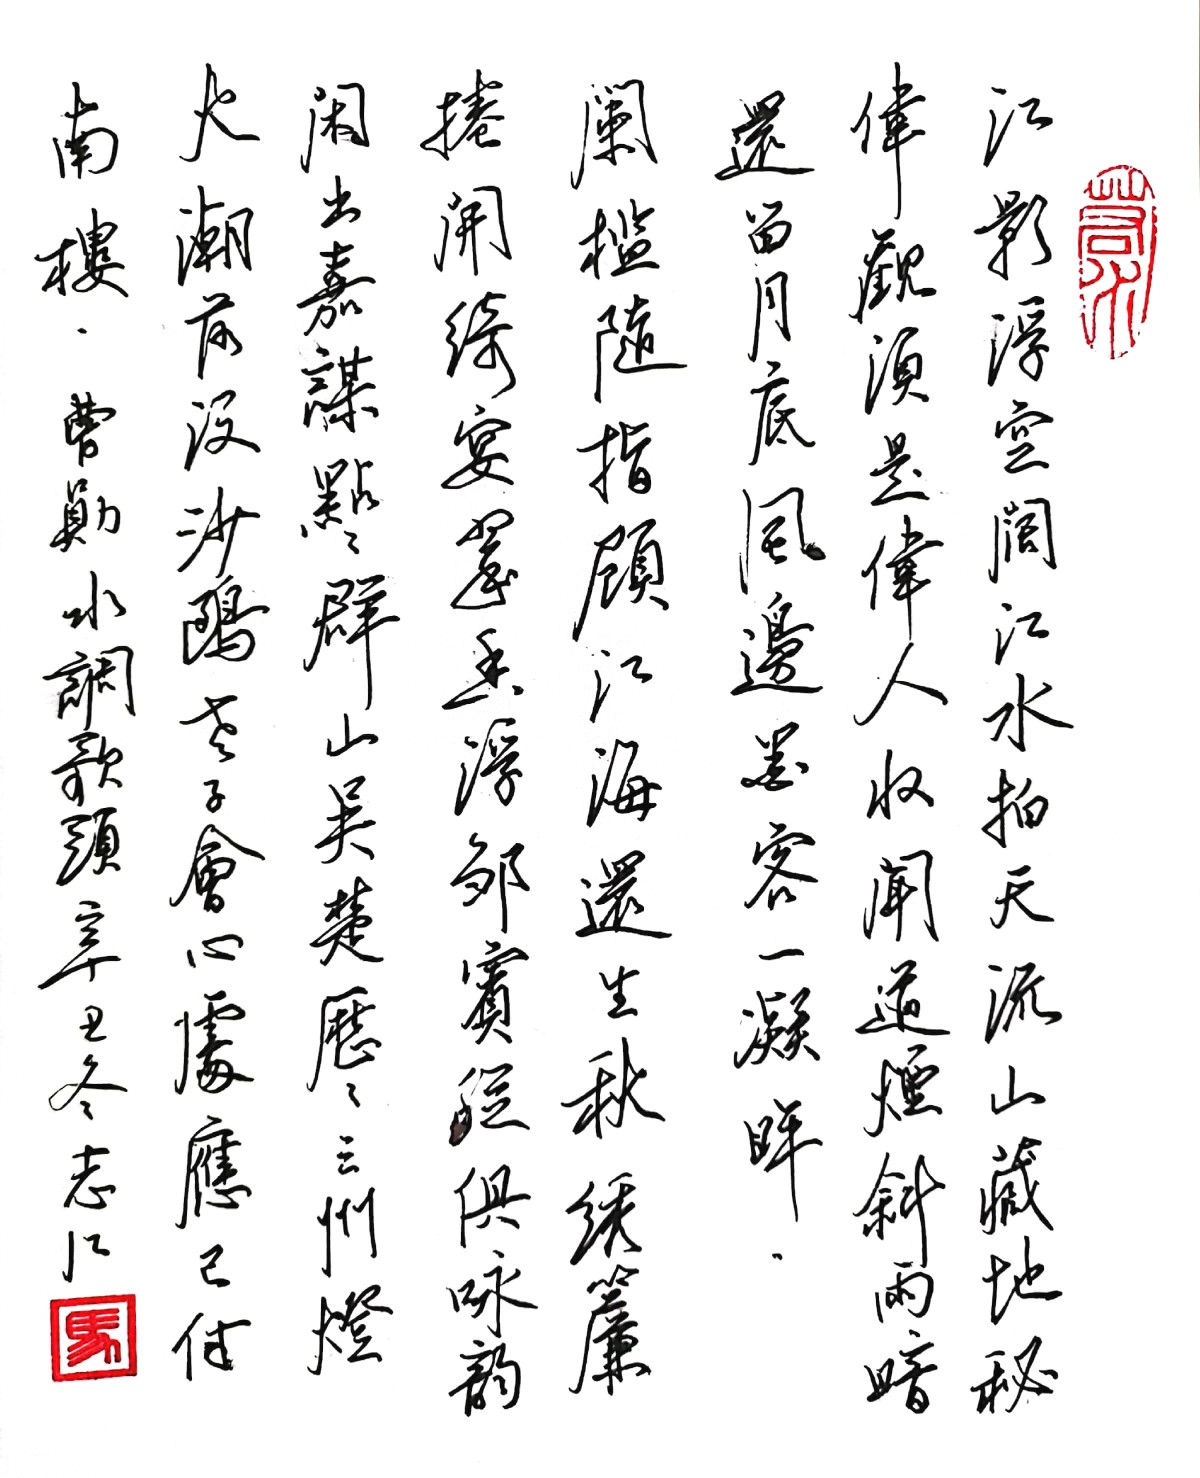 江影浮空闊江水拍天流山藏地秘
偉觀須是偉人收聞道煙斜雨暗
還留月底風邊客一凝眸.
闌檻隨指顧江海還生秋綉簾
捲開綺宴香浮鄒賓從俱詠韵
閑出嘉謀點々群山吳楚歷々三州燈
火潮落没沙鷗老子會心處應已付
南樓.曹勛水調歌頭辛丑冬志江
馬